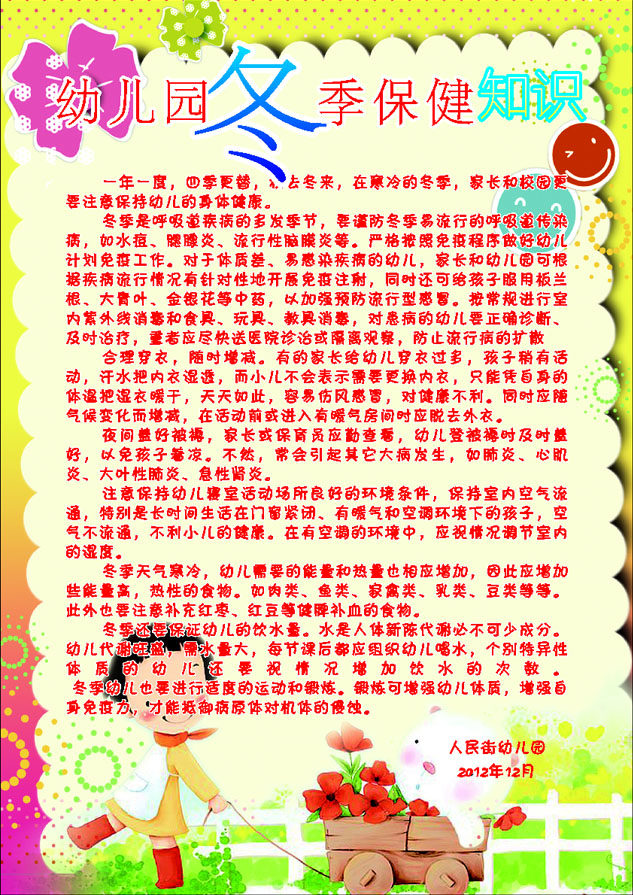 幼儿园冬季保健知识
一年一度，四季更替，去冬来，在寒冷的冬季，家长和校园更
要注意保持幼儿的身体健康。
冬季是呼吸道疾病的多发季节，要谨防冬季易流行的呼吸道传染
病，如水痘、腮腺炎、流行性脑膜炎等。严格按照免疫程序做好幼儿
计划免疫工作。对于体质差、易感染疾病的幼儿，家长和幼儿园可根
据疾病流行情况有针对性地开展免疫注射，同时还可给孩子服用板兰
根、大青叶、金银花等中药，以加强预防流行型感冒。按常规进行室
内紫外线消毒和食具、玩具、教具消毒，对患病的幼儿要正确诊断、
及时治疗，重者应尽快送医院诊治或隔离观察，防止流行病的扩散
合理穿衣，随时增减。有的家长给幼儿穿衣过多，孩子稍有活
动，汗水把内衣湿透，而小儿不会表示需要更换内衣，只能凭自身的
体温把湿衣暖干，天天如此，容易伤风感冒，对健康不利。同时应随
气候变化而增减，在活动前或进入有暖气房间时应脱去外衣。
夜间盖好被褥，家长或保育员应勤查看，幼儿登被褥时及时盖
好，以免孩子着凉。不然，常会引起其它大病发生，如肺炎、心肌
炎、大叶性肺炎、急性肾炎。
注意保持幼儿寝室活动场所良好的环境条件，保持室内空气流
通，特别是长时间生活在门窗紧闭、有暖气和空调环境下的孩子，空
气不流通，不利小儿的健康。在有空调的环境中，应视情况调节室内
的湿度。
冬季天气寒冷，幼儿需要的能量和热量也相应增加，因此应增加
些能量高，热性的食物。如肉类、鱼类、家禽类、乳类、豆类等等。
此外也要注意补充红枣、红豆等健脾补血的食物。
冬季还要保证幼儿的饮水量。水是人体新陈代谢必不可少成分。
幼儿代谢旺盛，需水量大，每节课后都应组织幼儿喝水，个别特异性
体质的幼儿还要视情况增加饮水的次数。
冬季幼儿也要进行适度的运动和锻炼。锻炼可增强幼儿体质，增强自
身免疫力，才能抵御病原体对机体的侵蚀。
人民街幼儿园
2012年12月